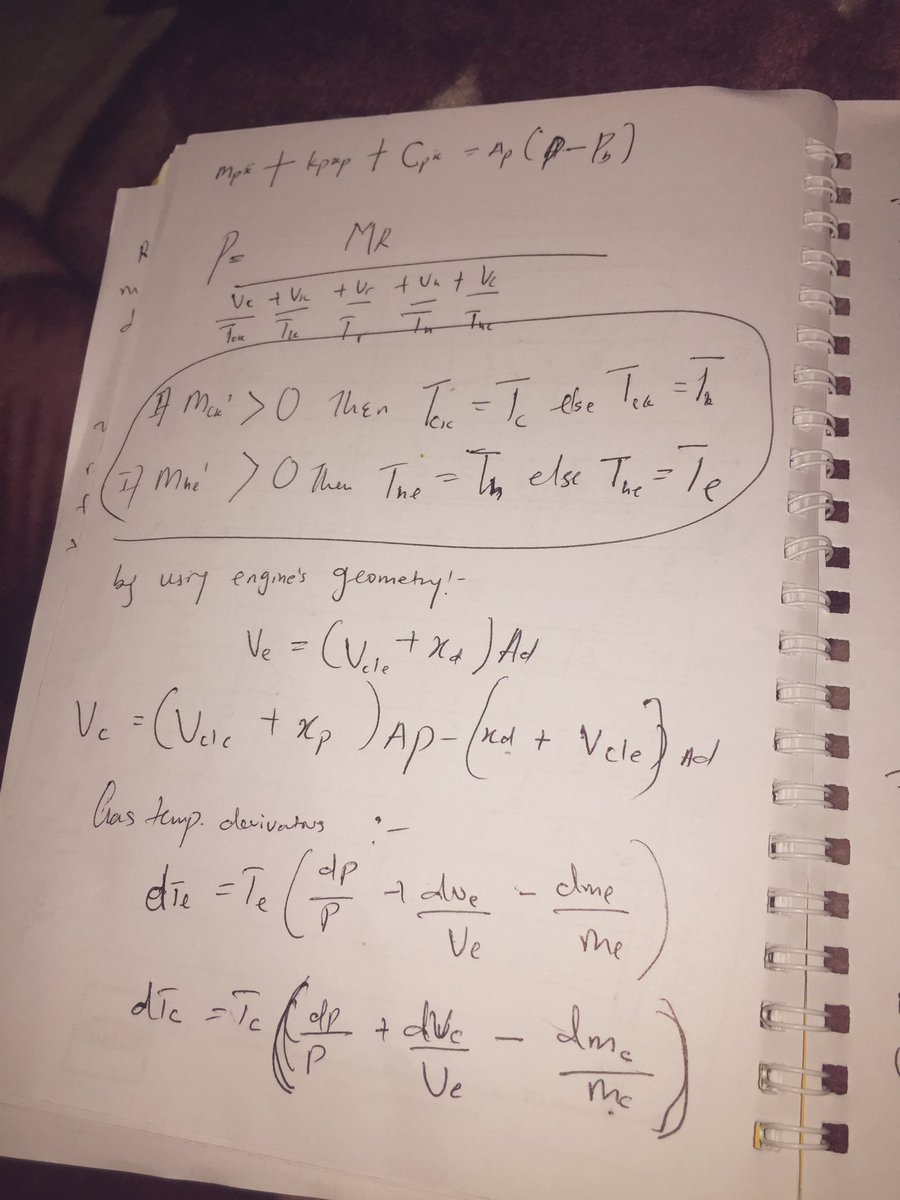 mpẍ + kpxp + Cpẋ = Ap (P - Pb)
P = MR / (Vc/Tck + Vk/Tk + Vr/Tr + Vh/Th + Vc/Thc)
If mck' > 0 Then Tck = Tc else Tck = Tk
If mhe' > 0 Then The = Th else The = Te
by using engine's geometry:-
Ve = (Vcle + xd) Ad
Vc = (Vclc + xp) Ap - (xd + Vcle) Ad
Gas temp. derivatives :-
dTe = Te (dp/P + dve/Ve - dme/me)
dTc = Tc (dp/P + dVc/Ve - dmc/mc)